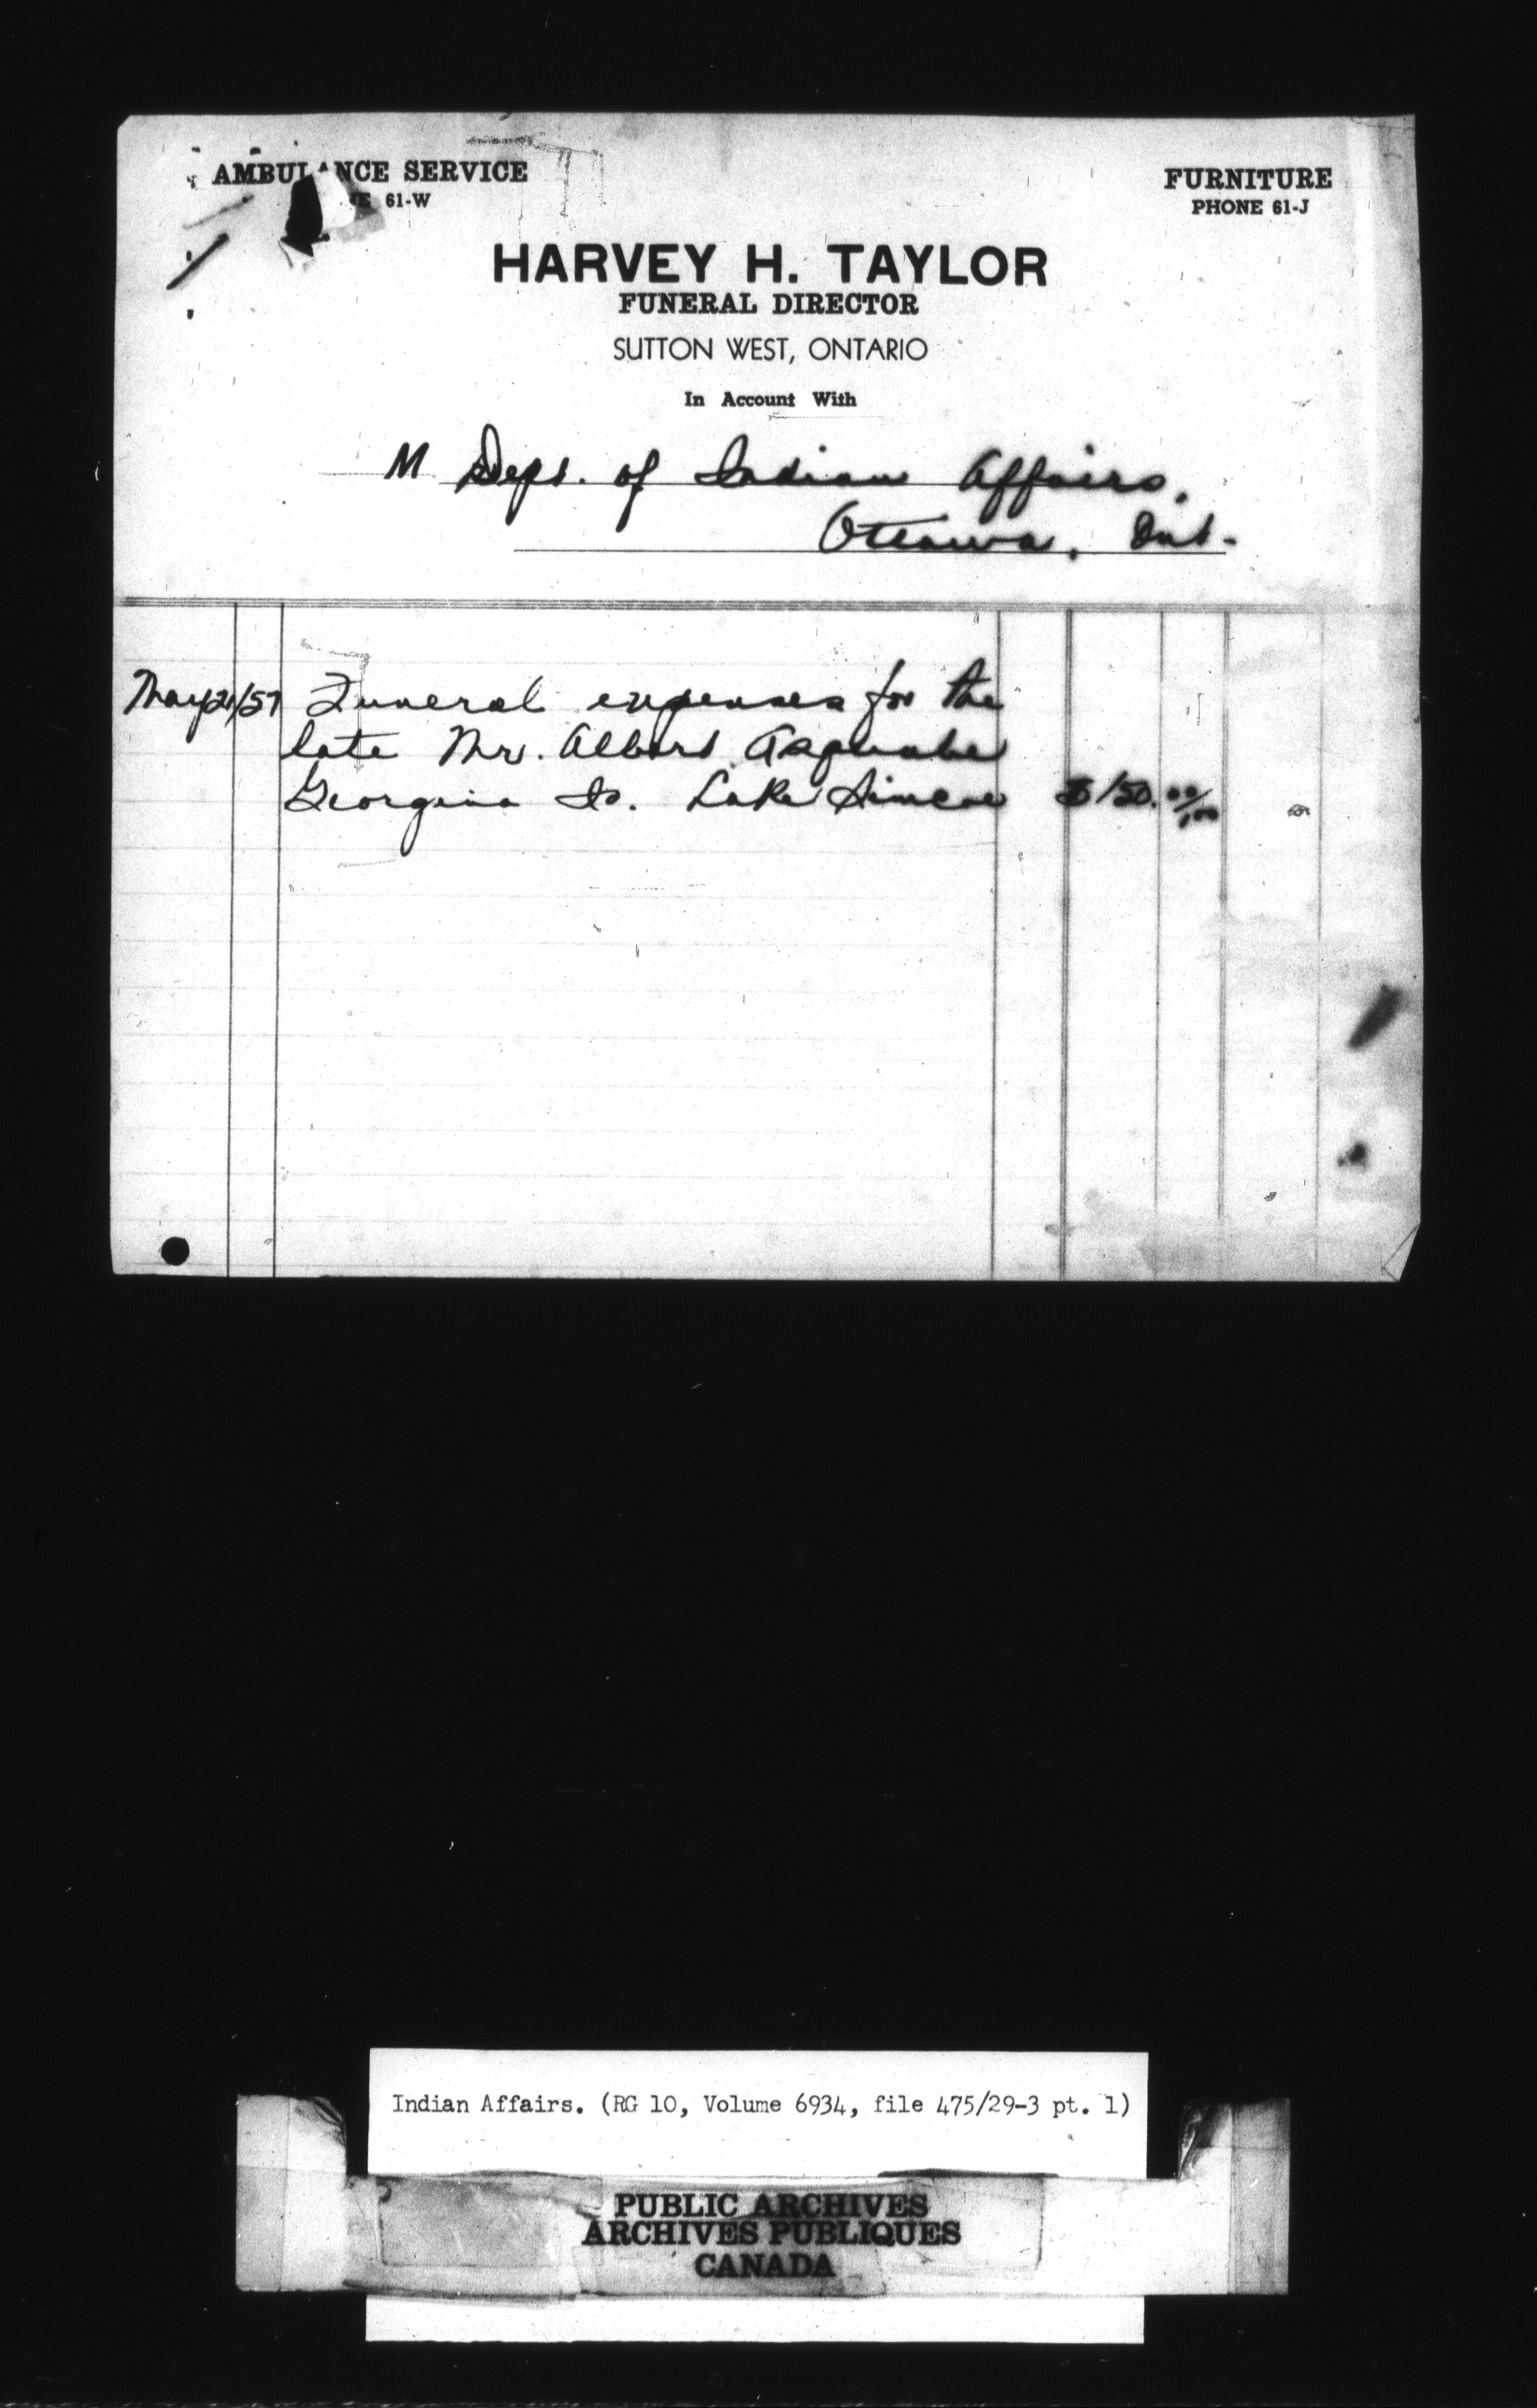 AMBULANCE SERVICE
61-W
FURNITURE
PHONE 61-J
HARVEY H. TAYLOR
FUNERAL DIRECTOR
SUTTON WEST, ONTARIO
In Account With
M Dept. of Indian Affairs,
Ottawa, Ont.
May 21/57 Funeral expenses for the
late Mr. Albert
Georgina Is. Lake Simcoe $150.00/100
Indian Affairs. (RG 10, Volume 6934, file 475/29-3 pt. 1)
PUBLIC ARCHIVES
ARCHIVES PUBLIQUES
CANADA